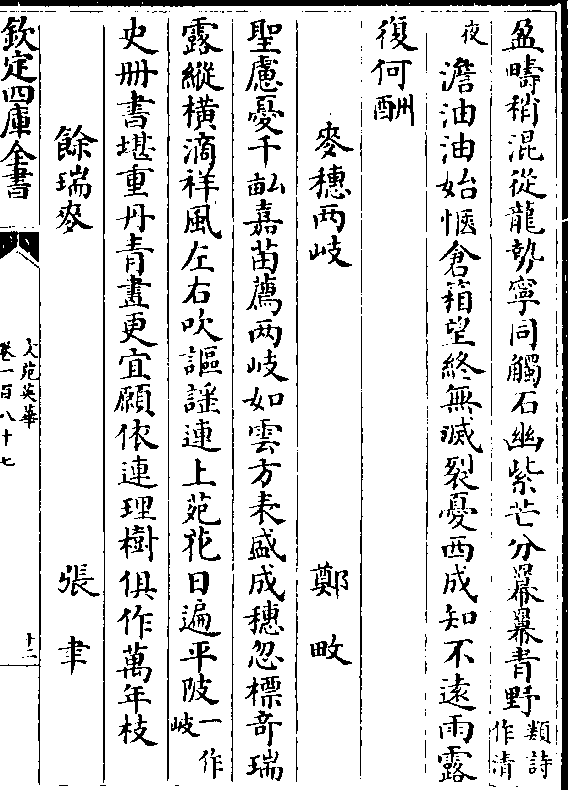 盈疇稍混從龍勢寧同觸石幽紫芒分羃羃青野類詩作清
夜澹油油始愜倉箱望終無滅裂憂西成知不遠雨露
復何酬
麥穗两岐　鄭畋
聖慮憂千畝嘉苗薦两岐如雲方表盛成穗忽標竒瑞
露縱横滴祥風左右吹謳謡連上苑花日遍平陂一作岐
史冊書堪重丹青畫更宜願依連理樹俱作萬年枝
餘瑞麥　張聿
欽定四庫全書
文苑英華
卷一百八十七
十二